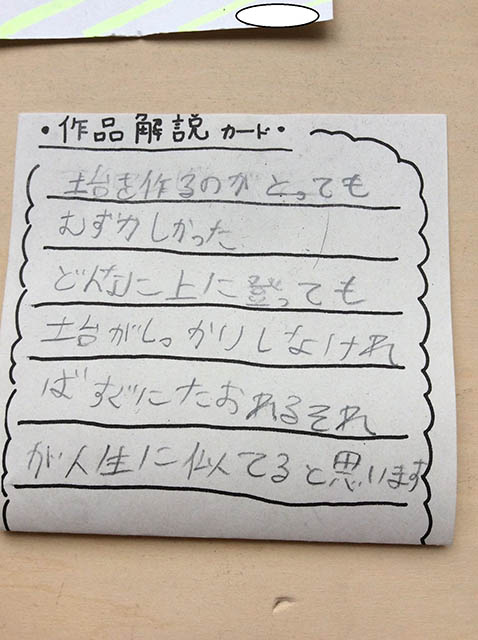 ・作品解説カード・
土台を作るのがとっても
むずかしかった
どんなに上に登っても
土台がしっかりしなけれ
ばすぐにたおれるそれ
が人生に似てると思います